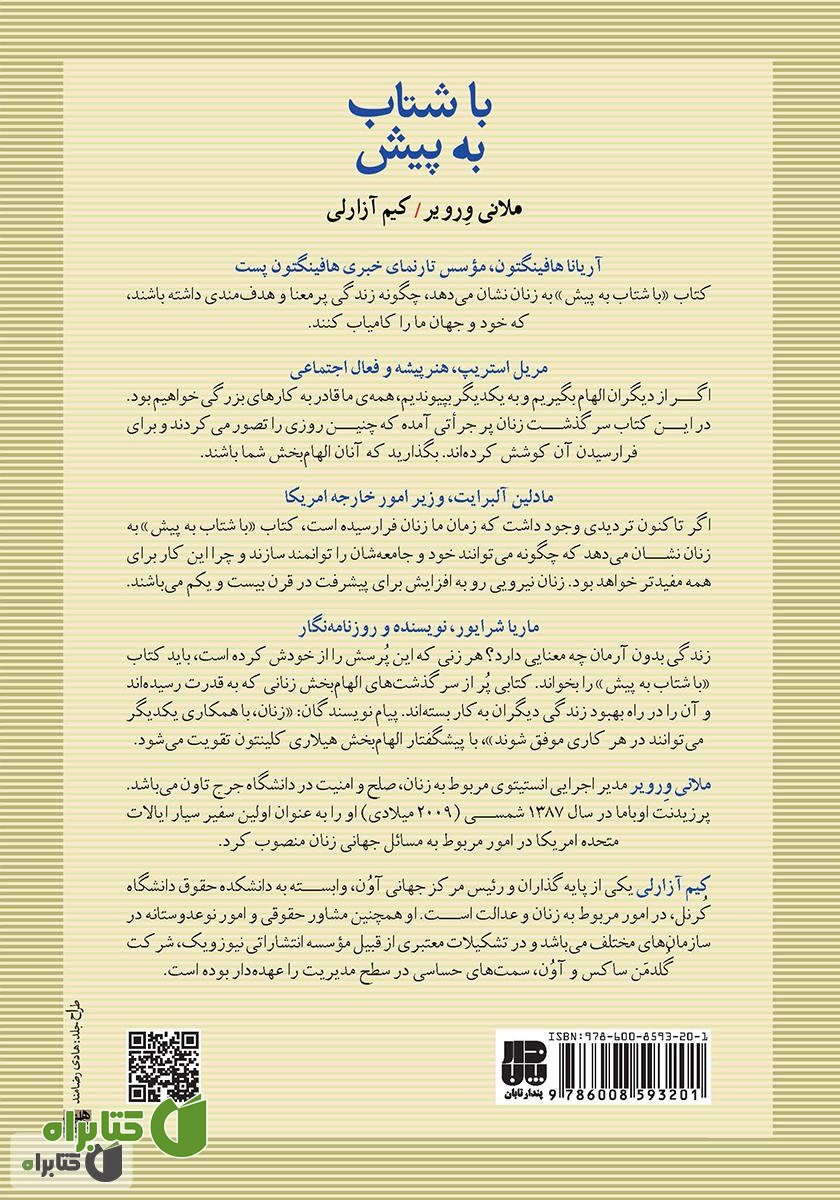 با شتاب
به پیش
ملانی وِرویر / کیم آزارلی
آریانا هافینگتون، مؤسس تارنمای خبری هافینگتون پست
کتاب «با شتاب به پیش» به زنان نشان می‌دهد، چگونه زندگی پرمعنا و هدف‌مندی داشته باشند،
که خود و جهان ما را کامیاب کنند.
مریل استریپ، هنرپیشه و فعال اجتماعی
اگر از دیگران الهام بگیریم و به یکدیگر بپیوندیم، همه‌ی ما قادر به کارهای بزرگی خواهیم بود.
در این کتاب سرگذشت زنان پر جرأتی آمده که چنین روزی را تصور می‌کردند و برای
فرارسیدن آن کوشش کرده‌اند. بگذارید که آنان الهام‌بخش شما باشند.
مادلین آلبرایت، وزیر امور خارجه امریکا
اگر تاکنون تردیدی وجود داشت که زمان ما زنان فرارسیده است، کتاب «با شتاب به پیش» به
زنان نشان می‌دهد که چگونه می‌توانند خود و جامعه‌شان را توانمند سازند و چرا این کار برای
همه مفیدتر خواهد بود. زنان نیرویی رو به افزایش برای پیشرفت در قرن بیست و یکم می‌باشند.
ماریا شرایور، نویسنده و روزنامه‌نگار
زندگی بدون آرمان چه معنایی دارد؟ هر زنی که این پُرسش را از خودش کرده است، باید کتاب
«با شتاب به پیش» را بخواند. کتابی پُر از سرگذشت‌های الهام‌بخش زنانی که به قدرت رسیده‌اند
و آن را در راه بهبود زندگی دیگران به کار بسته‌اند. پیام نویسندگان: «زنان، با همکاری یکدیگر
می‌توانند در هر کاری موفق شوند»، با پیشگفتار الهام‌بخش هیلاری کلینتون تقویت می‌شود.
ملانی وِرویر مدیر اجرایی انستیتوی مربوط به زنان، صلح و امنیت در دانشگاه جرج تاون می‌باشد.
پرزیدنت اوباما در سال ۱۳۸۷ شمسی (۲۰۰۹ میلادی) او را به عنوان اولین سفیر سیار ایالات
متحده امریکا در امور مربوط به مسائل جهانی زنان منصوب کرد.
کیم آزارلی یکی از پایه گذاران و رئیس مرکز جهانی آوُن، وابسته به دانشکده حقوق دانشگاه
کُرنل، در امور مربوط به زنان و عدالت است. او همچنین مشاور حقوقی و امور نوعدوستانه در
سازمان‌های مختلف می‌باشد و در تشکیلات معتبری از قبیل مؤسسه انتشاراتی نیوزویک، شرکت
گُلدمَن ساکس و آوُن، سمت‌های حساسی در سطح مدیریت را عهده‌دار بوده است.
طراح جلد: هادی رضامند
ISBN: 978-600-8593-20-1
9 786008 593201
پندار تابان
کتابراه
کتابراه